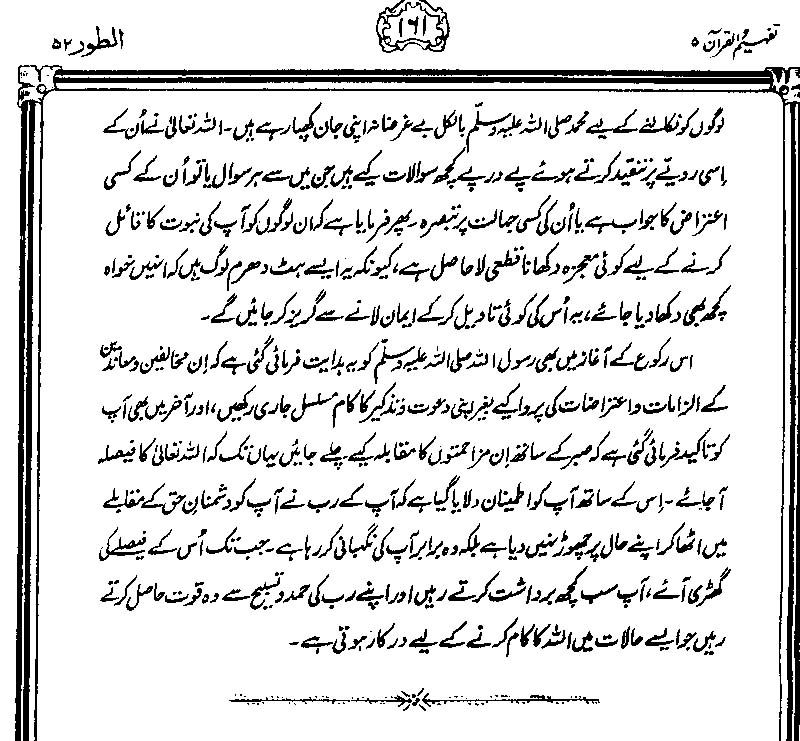 تفہیم القرآن ۵
۱۶۱
الطور ۵۲
لوگوں کو نکالنے کے لیے محمد صلی اللہ علیہ وسلّم بالکل بے غرضانہ اپنی جان کھپا رہے ہیں۔ اللہ تعالیٰ نے اُن کے
اِسی رویّے پر تنقید کرتے ہوئے پے در پے کچھ سوالات کیے ہیں جن میں سے ہر سوال یا تو اُن کے کسی
اعتراض کا جواب ہے یا اُن کی کسی جہالت پر تبصرہ۔ پھر فرمایا ہے کہ ان لوگوں کو آپ کی نبوت کا قائل
کرنے کے لیے کوئی معجزہ دکھانا قطعی لاحاصل ہے، کیونکہ یہ ایسے ہٹ دھرم لوگ ہیں کہ انہیں خواہ
کچھ بھی دکھا دیا جائے، یہ اُس کی کوئی تاویل کر کے ایمان لانے سے گریز کر جائیں گے۔
اس رکوع کے آغاز میں بھی رسول اللہ صلی اللہ علیہ وسلّم کو یہ ہدایت فرمائی گئی ہے کہ اِن مخالفین و معاندین
کے الزامات و اعتراضات کی پروا کیے بغیر اپنی دعوت و تذکیر کا کام مسلسل جاری رکھیں، اور آخر میں بھی آپ
کو تاکید فرمائی گئی ہے کہ صبر کے ساتھ اِن مزاحمتوں کا مقابلہ کیے چلے جائیں یہاں تک کہ اللہ تعالیٰ کا فیصلہ
آجائے۔ اِس کے ساتھ آپ کو اطمینان دلایا گیا ہے کہ آپ کے رب نے آپ کو دشمنانِ حق کے مقابلے
میں اٹھا کر اپنے حال پر چھوڑ نہیں دیا ہے بلکہ وہ برابر آپ کی نگہبانی کر رہا ہے۔ جب تک اُس کے فیصلے کی
گھڑی آئے، آپ سب کچھ برداشت کرتے رہیں اور اپنے رب کی حمد و تسبیح سے وہ قوت حاصل کرتے
رہیں جو ایسے حالات میں اللہ کا کام کرنے کے لیے درکار ہوتی ہے۔